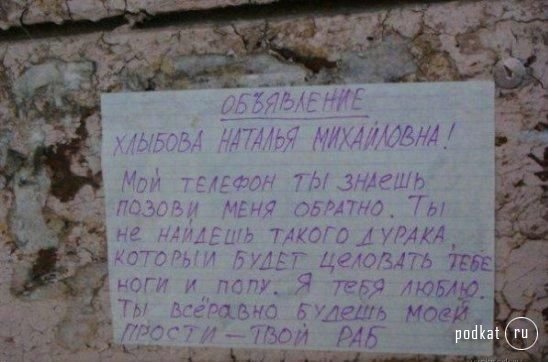 ОБЪЯВЛЕНИЕ
ХЛЫБОВА НАТАЛЬЯ МИХАЙЛОВНА!
МОЙ ТЕЛЕФОН ТЫ ЗНАЕШЬ
ПОЗОВИ МЕНЯ ОБРАТНО. ТЫ
НЕ НАЙДЕШЬ ТАКОГО ДУРАКА,
КОТОРЫЙ БУДЕТ ЦЕЛОВАТЬ ТЕБЕ
НОГИ И ПОПУ. Я ТЕБЯ ЛЮБЛЮ.
ТЫ ВСЁРАВНО БУДЕШЬ МОЕЙ
ПРОСТИ — ТВОЙ РАБ
podkat ru